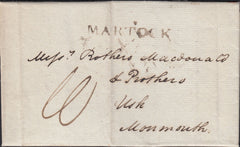 MARTOCK
Messrs. Prothero Macdonald
& Prothero
Usk
Monmouth.
10